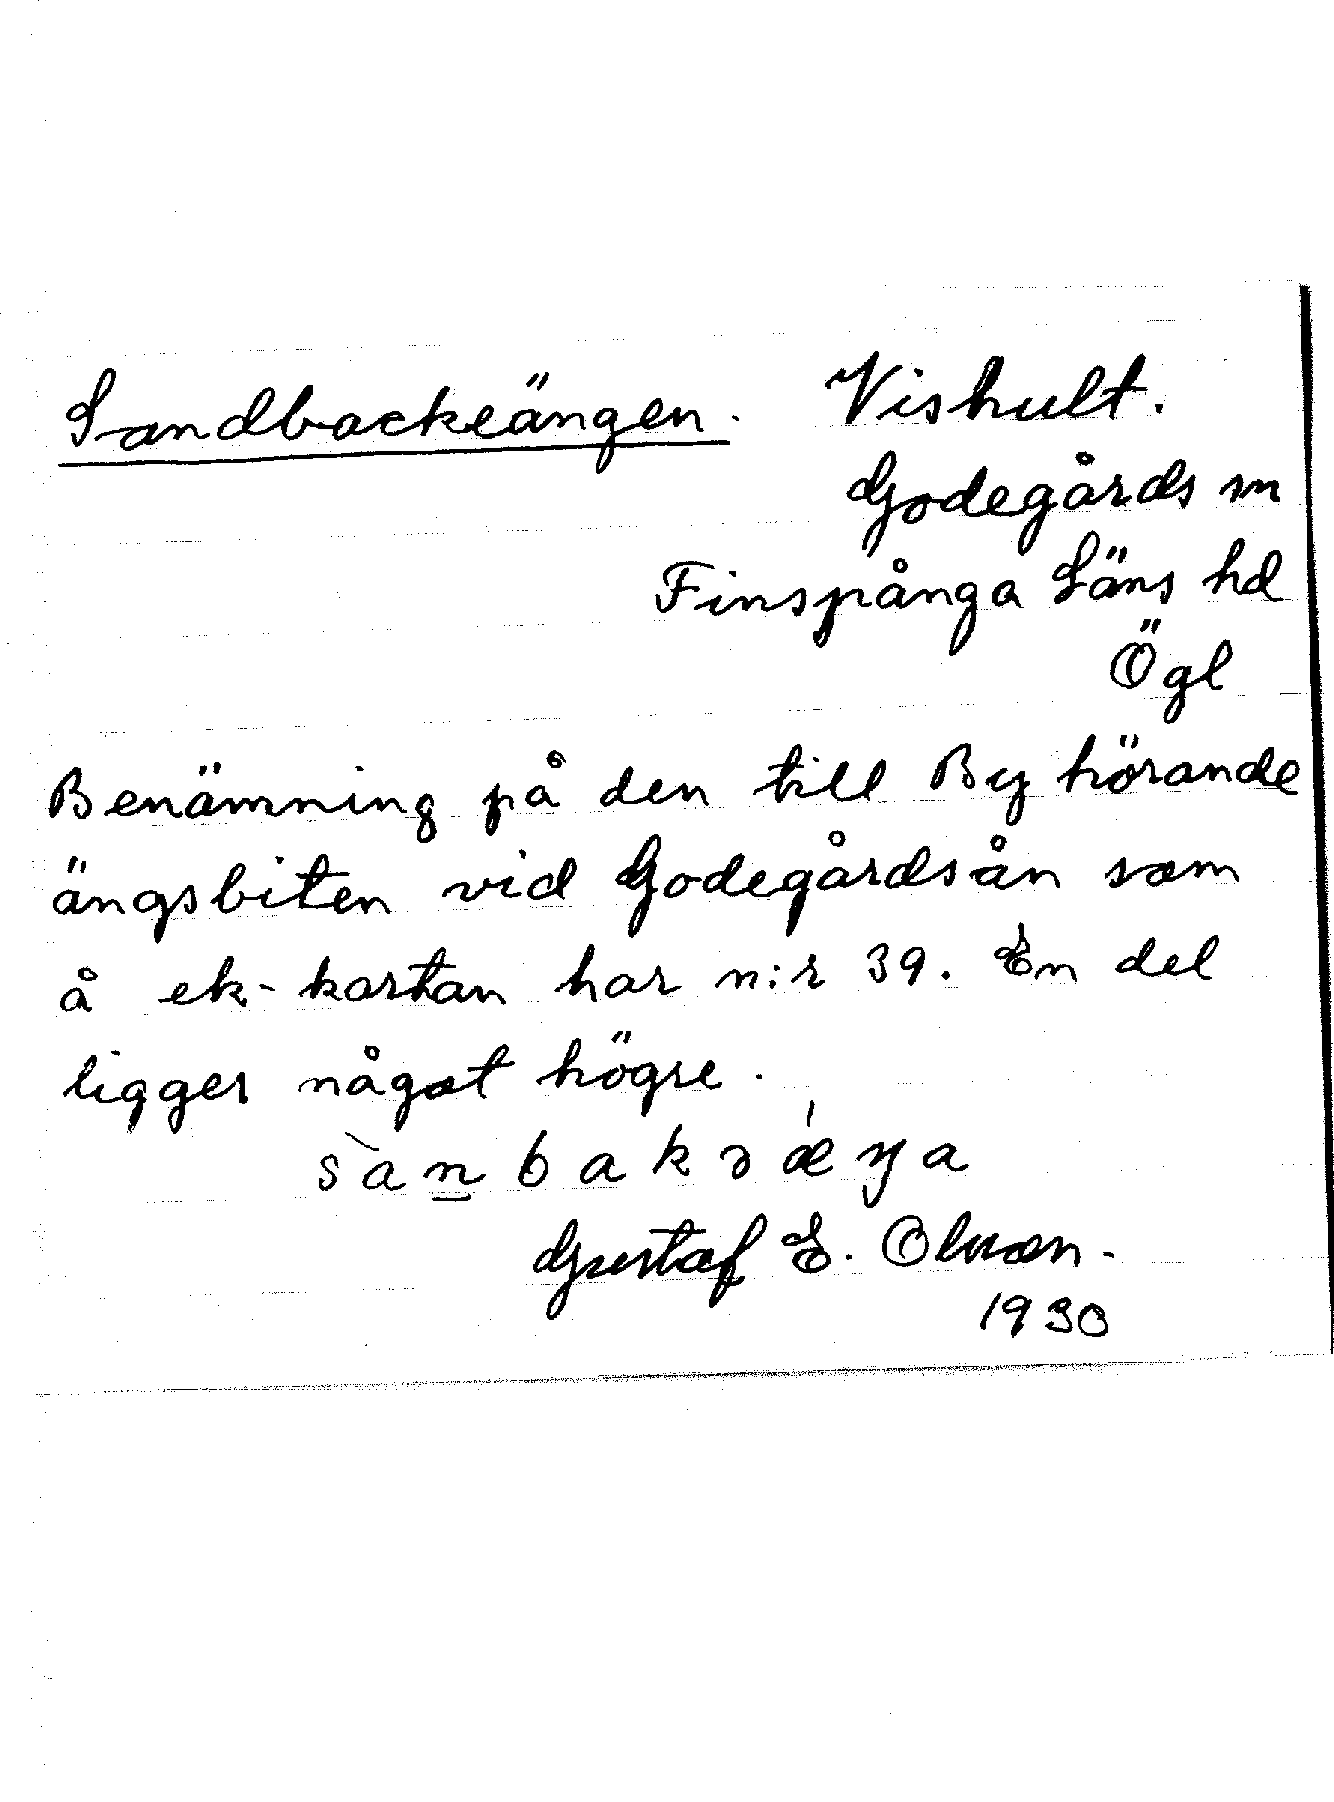 Sandbackeängen. Vishult.
Godegårds sn
Finspånga Läns hd
Ögl
Benämning på den till By hörande
ängsbiten vid Godegårdsån som
å ek-kartan har n:r 39. En del
ligger något högre.
sànbakəǽŋa
Gustaf E. Olsson.
1930